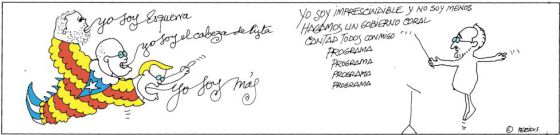 yo soy Esquerra
yo soy el cabeza de lista
yo soy más
YO SOY IMPRESCINDIBLE Y NO SOY MENOS
HAGAMOS UN GOBIERNO CORAL
CONTAD TODOS CONMIGO
PROGRAMA
PROGRAMA
PROGRAMA
PROGRAMA
©